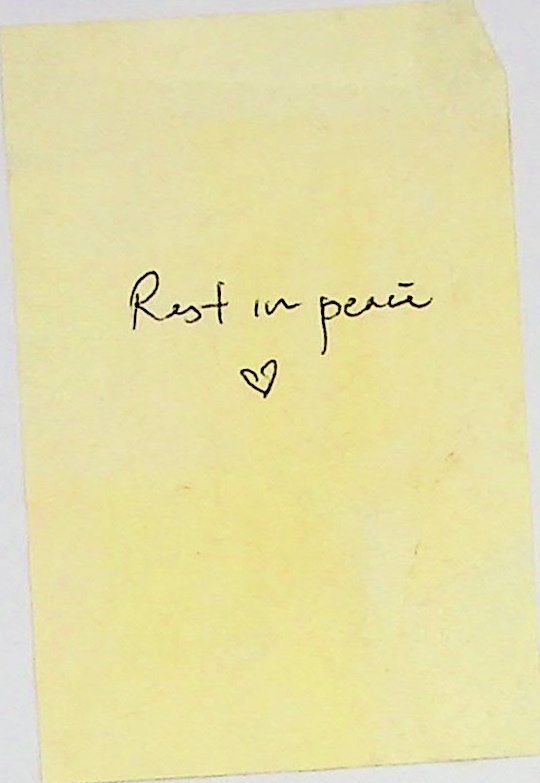 Rest in peace
♡